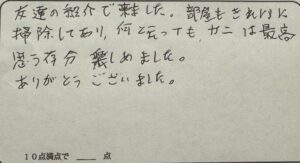 友達の紹介で来ました。部屋もきれいに
掃除してあり、何と云っても カニ は最高
思う存分 楽しめました。
ありがとうございました。
10点満点で ___ 点